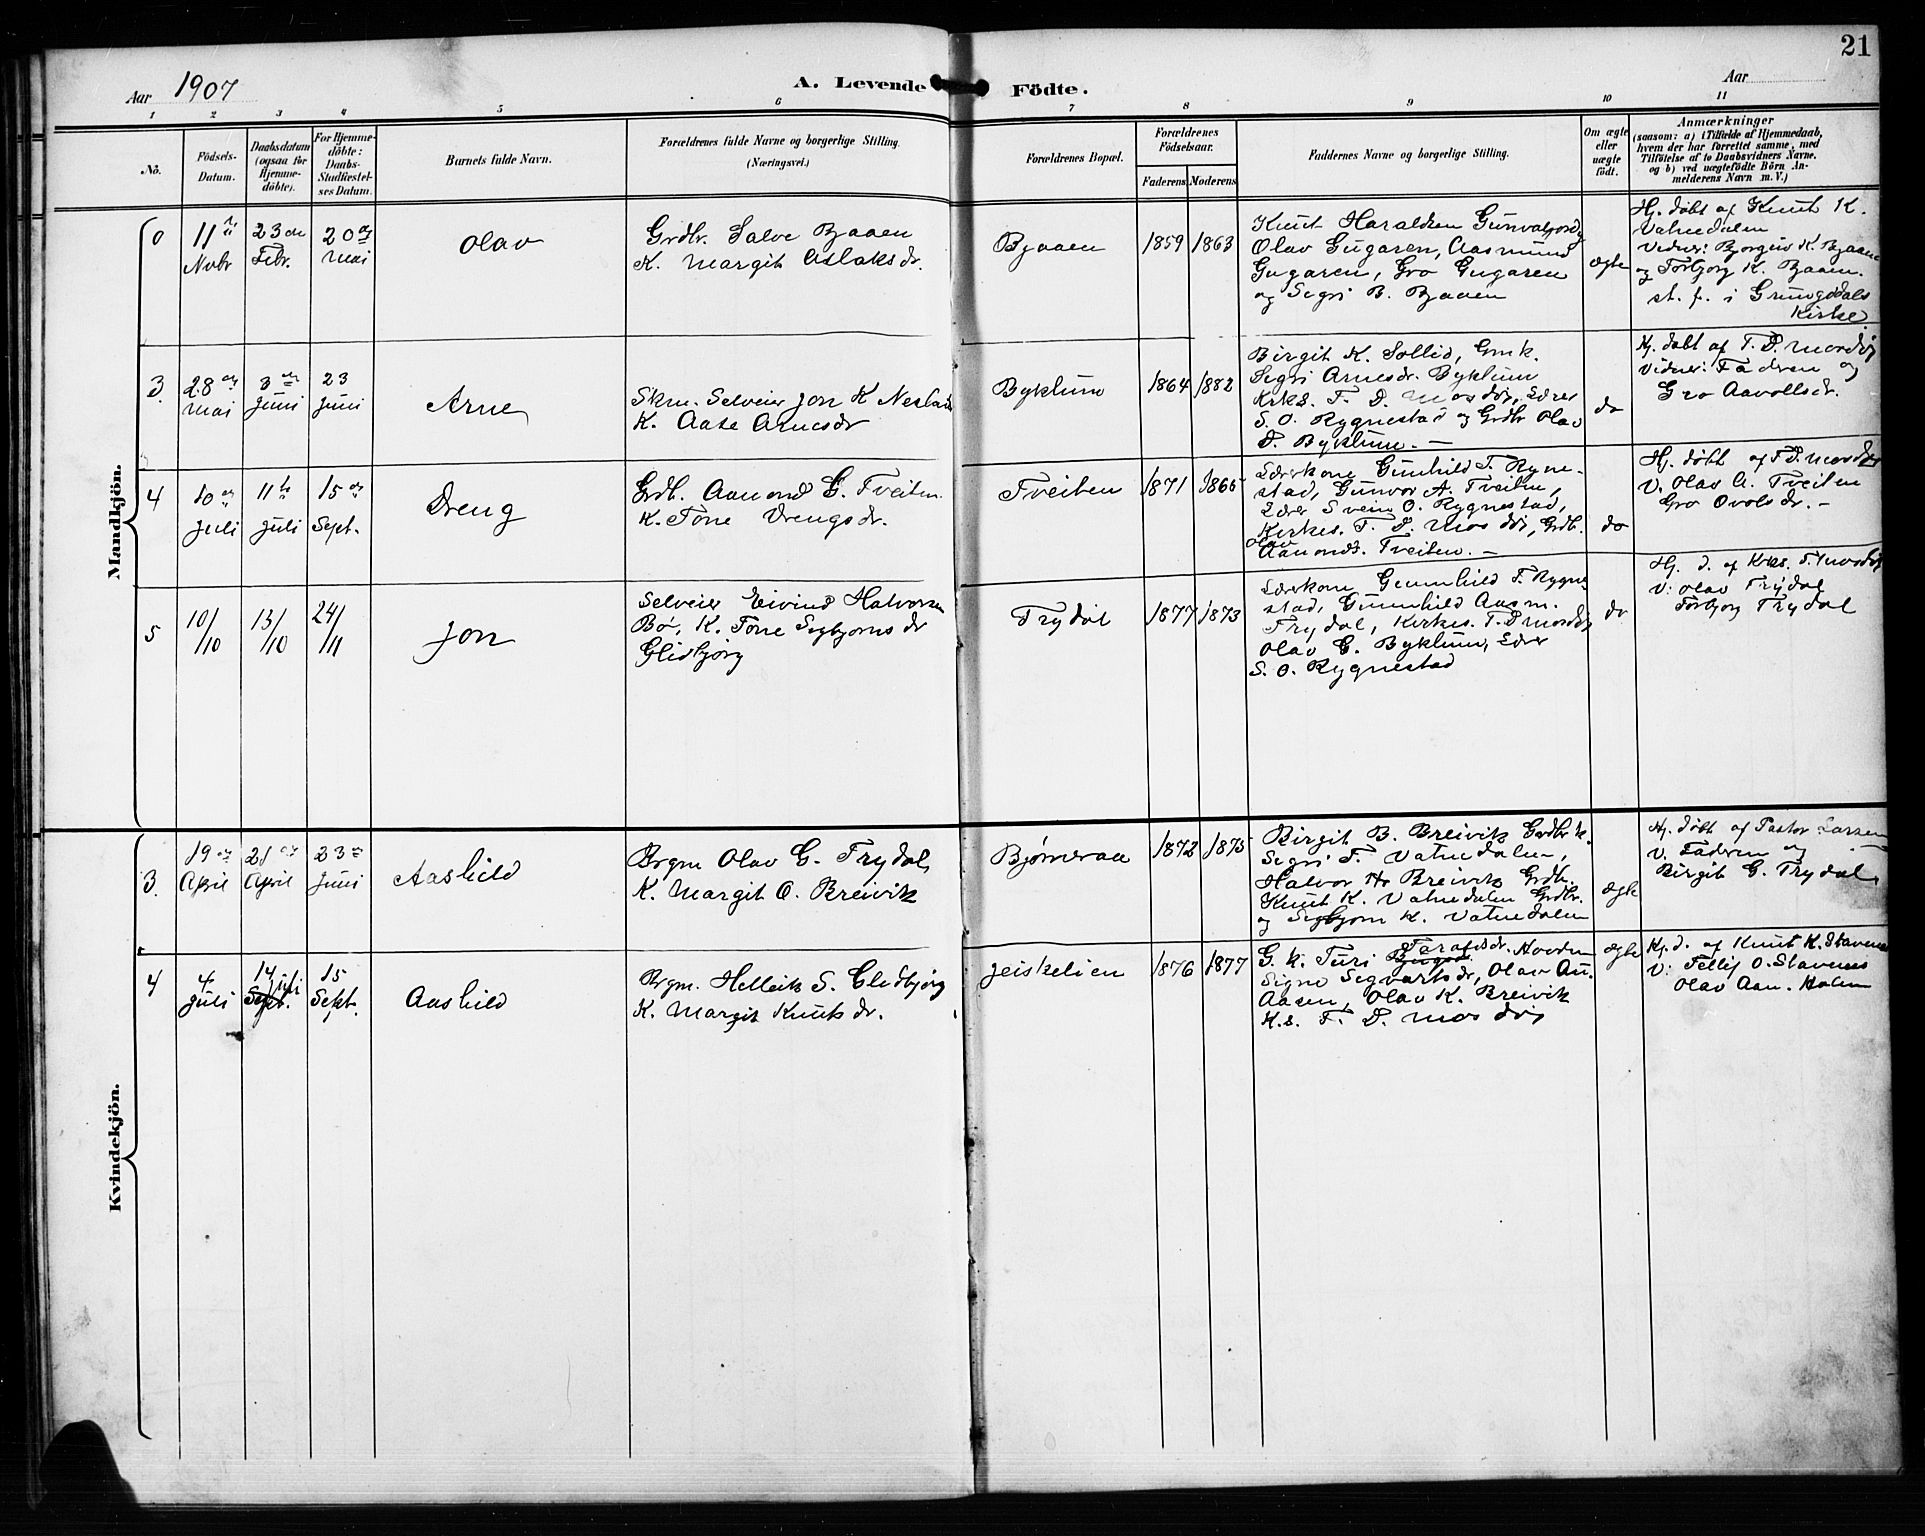 21
Aar 1907
A. Levende Födte.
Aar
1 2 3 4 5 6 7 8 9 10 11
No.
Födsels-
Datum.
Daabsdatum
(ogsaa for
Hjemme-
döbte).
For Hjemme-
döbte:
Daabs-
Stadfæstel-
ses Datum.
Barnets fulde Navn.
Forældrenes fulde Navne og borgerlige Stilling.
(Næringsvei.)
Forældrenes Bopæl.
Forældrenes
Födselsaar.
Faderens Moderens
Faddernes Navne og borgerlige Stilling.
Om ægte
eller
uægte
födt.
Anmærkninger
(saasom: a) i Tilfælde af Hjemmedaab,
hvem der har forrettet samme, med
Tilföielse af to Daabsvidners Navne.
og b) ved uægtefödte Börn An-
melderens Navn m. V.)
Mandkjön.
0
11
Nvbr
23
Febr.
20
mai
Olav
Grdbr. Salve Bjaaen
K. Margit Aslaksdr.
Bjaaen
1859
1863
Knut Haraldsen
Olav Gugaren, Aasmund
Gugaren, Gro Gugaren
og Sigri B. Bjaaen
ægte
Hj. døbt af Knut K.
Vatnedalen
Vidner: Bjørguv K. Bjaaen
og Torbjørg K. Bjaaen.
st. f. i Grungedals
Kirke.
3.
28
mai
3
Juni
23
Juni
Arne
Skm. Selveier Jon K
K. Aase Arnesdr
Byklum
1864
1882
Birgit K. Sollid, Gmk.
Sigri Arnesdr. Byklum
Krks. T. D. Mosdøj, Lærer
S. O. Rygnestad og Grdbr Olav
D. Byklum. —
do
Hj. døbt af T. D. Mosdøj
Vidner: Faderen og
Gro Aavollsdr.
4
10
Juli
11
Juli
15
Sept.
Dreng
Grdb. Aamond G. Tveiten.
K. Tone Drengsdr.
Tveiten
1871
1865
Lærerkone Gunhild T. Rygne-
stad, Gunvor A. Tveiten,
Lærer Svein O. Rygnestad,
Kirkes. T. D. Mosdøj, Grdb.
Olav
Aamonds. Tveiten. —
do
Hj. døbt af T. D. Mosdøj
V. Olav A. Tveiten
Gro Ovolsdr. —
5
10/10
13/10
24/11
Jon
Selveier Eivind Halvorsen
Bø, K. Tone Sigbjørnsdr
Glidbjørg
Trydal
1877
1873
Lærerkone Gunnhild T. Rygne-
stad, Gunnhild Aasm.
Trydal, Kirkes. T. D. Mosdøj
Olav G. Byklum, Lærer
S. O. Rygnestad
do
Hj. d. af Krks. T. Mosdøj
V: Olav Trydal
Torbjørg Trydal
Kvindekjön.
3.
19
April
21
April
23
Juni
Aashild
Brgm Olav G. Trydal,
K. Margit O. Breivik
Bjørneraa
1872
1875
Birgit B. Breivik Grdbr k.
Sigri T. Vatnedalen,
Halvor Breivik Grdb.
Knut K. Vatnedalen Grdbr.
og Sigbjørn K. Vatnedalen
ægte
Hj. døbt af Pastor Larsen
V. Faderen og
Birgit G. Trydal
4
4
Juli
14
Juli
Sept.
15
Sept.
Aashild
Brgm. Helleik S. Glidbjørg
K. Margit Knutsdr.
Jeiskelien
1876
1877
G. k. Turi Taraldsdr. Hovden
Signe Sigvartsdr, Olav
Aasen, Olav K. Breivik
K.s. T. D. Mosdøj
ægte
Hj. d. af Knut K. Stavenes
V: Tellef O. Stavenes
Olav Aan. Holen